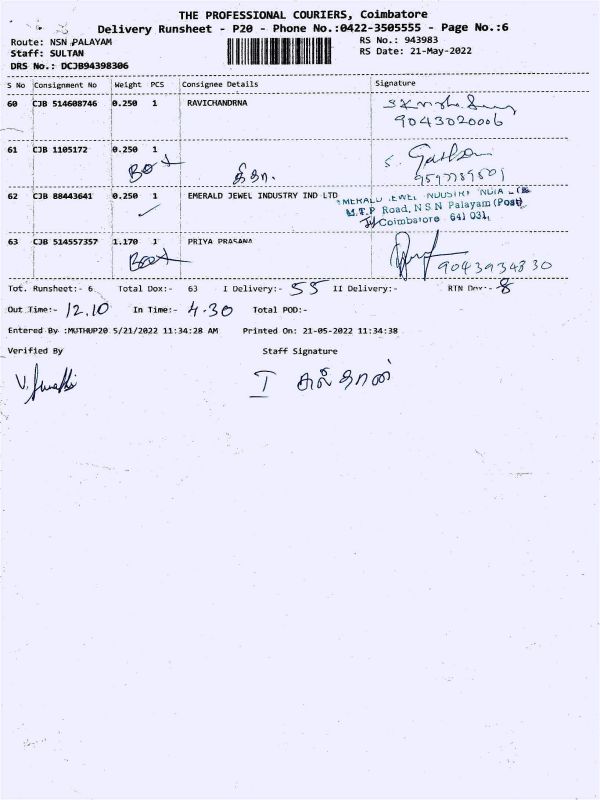 THE PROFESSIONAL COURIERS, Coimbatore
Delivery Runsheet - P20 - Phone No.:0422-3505555 - Page No.:6
Route: NSN PALAYAM
RS No.: 943983
Staff: SULTAN
RS Date: 21-May-2022
DRS No.: DCJB94398306
S No Consignment No Weight PCS Consignee Details Signature
60 CJB 514608746 0.250 1 RAVICHANDRNA
9043020006
61 CJB 1105172 0.250 1
Box கீதா. S.
9597789501
62 CJB 88443641 0.250 1 EMERALD JEWEL INDUSTRY IND LTD
EMERALD JEWEL INDUSTRY INDIA LTD
M.T.P Road, N.S.N Palayam (Post)
Coimbatore 641 031,
63 CJB 514557357 1.170 1 PRIYA PRASANA
Boox 9043934830
Tot. Runsheet:- 6 Total Dox:- 63 I Delivery:- 55 II Delivery:- RTN Dox:- 8
Out Time:- 12.10 In Time:- 4.30 Total POD:-
Entered By :MUTHUP20 5/21/2022 11:34:28 AM Printed On: 21-05-2022 11:34:38
Verified By Staff Signature
I சுல்தான்